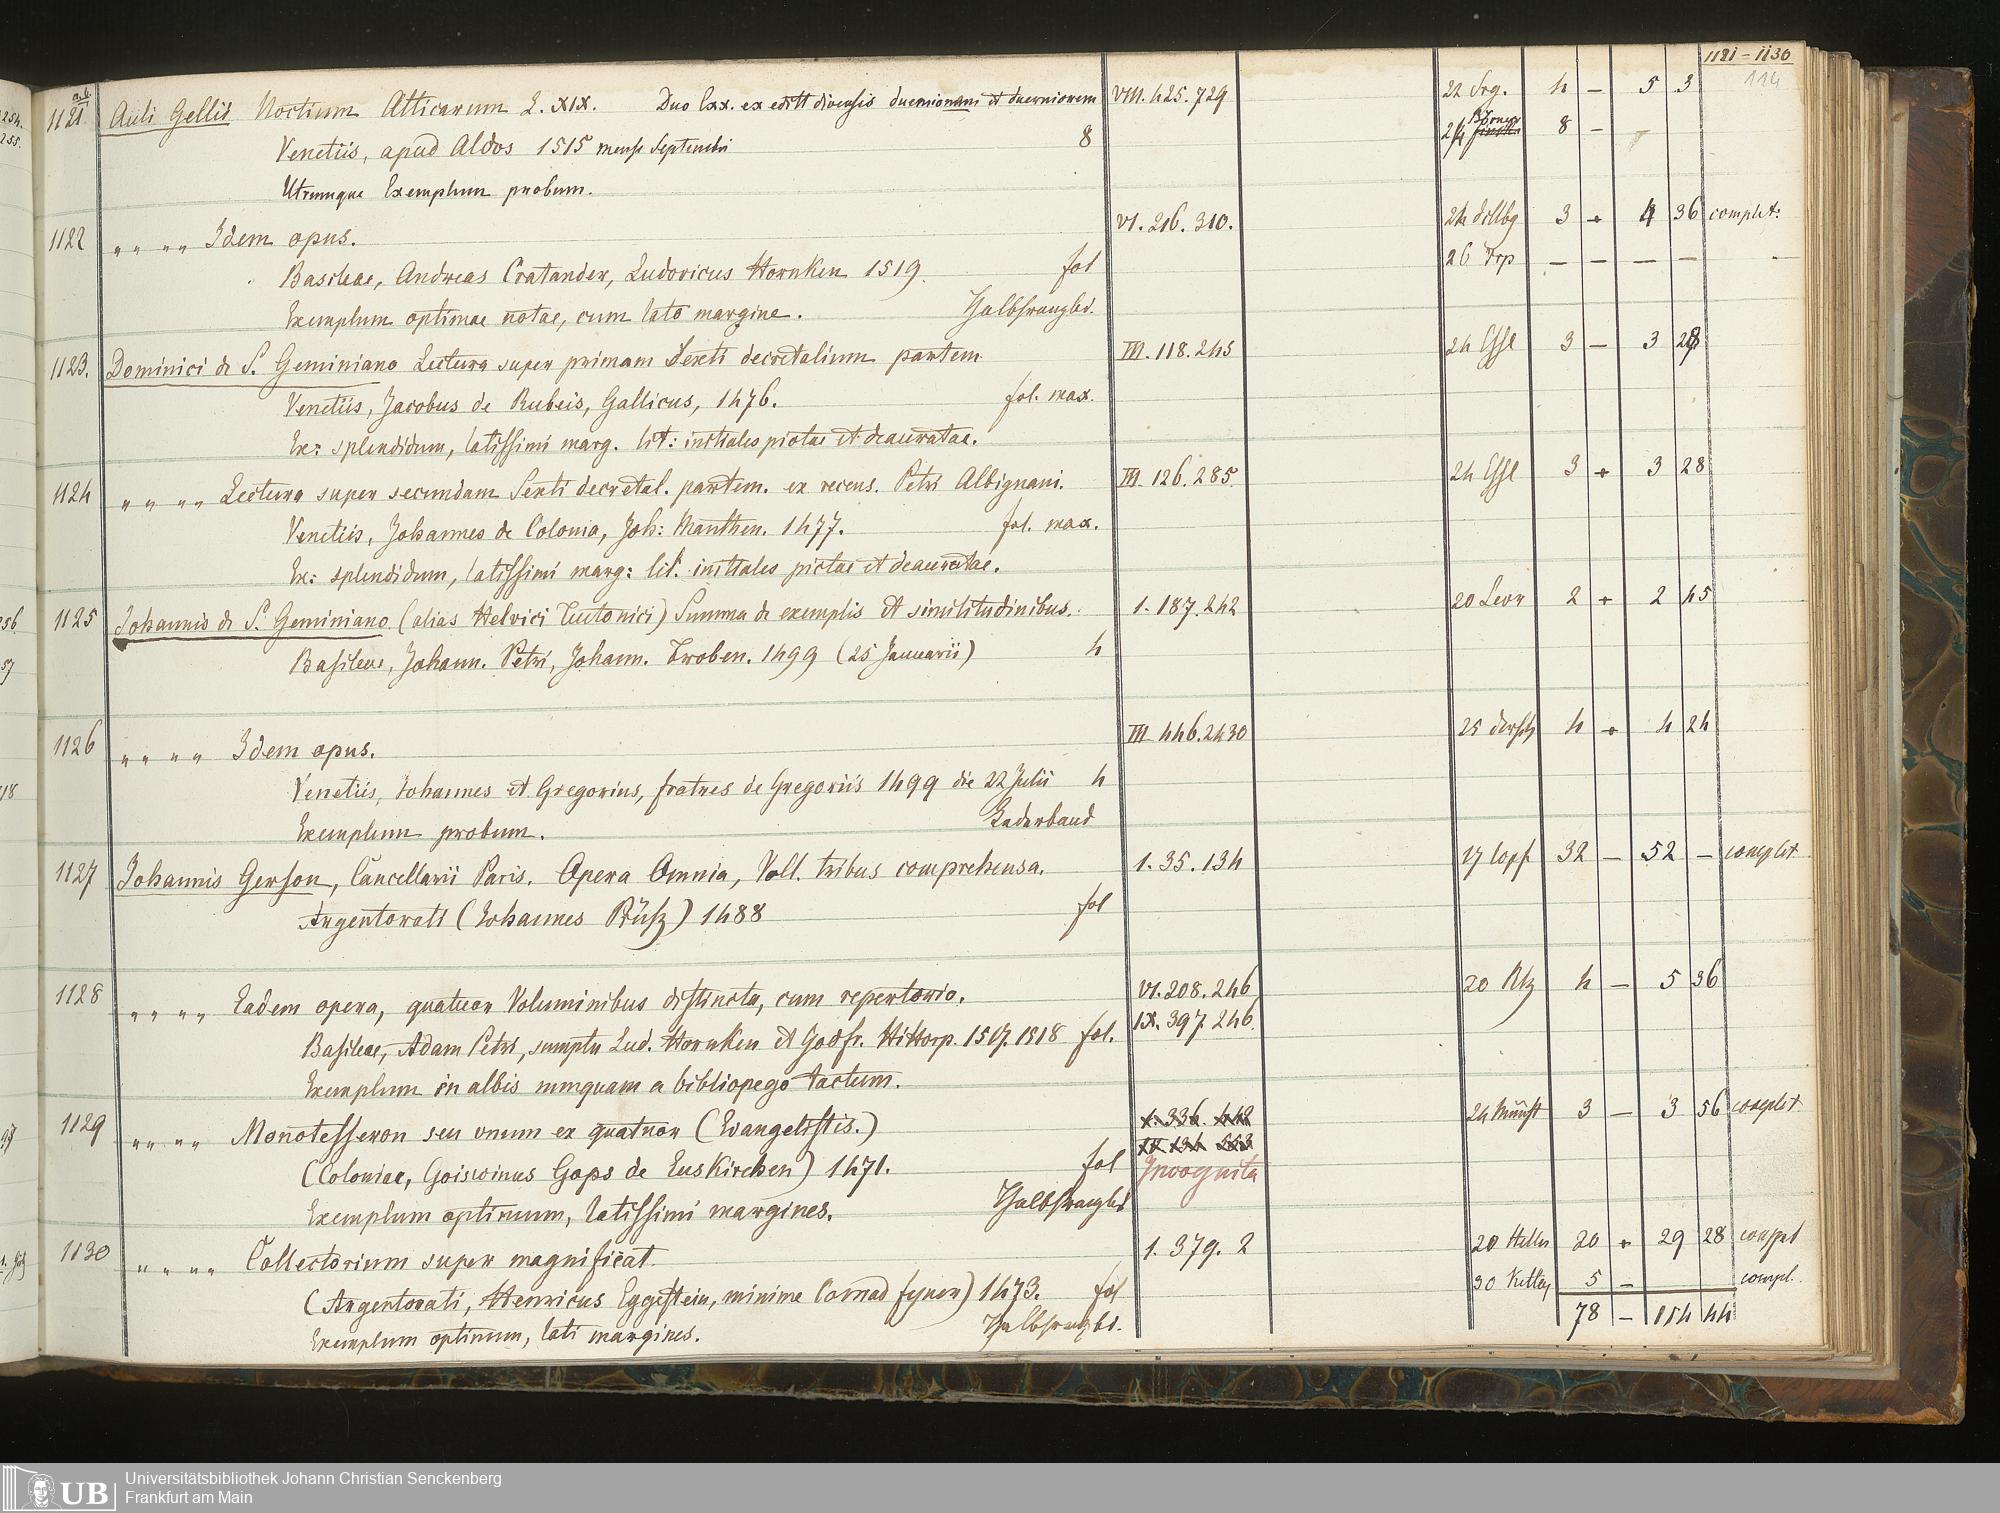 1121–1130
114
a.b.
1121 Auli Gellii Noctium Atticarum L. XIX. Duo Exx. ex editt diversis duernionem et duerniorem VIII. 425. 729 22 Frg. 4 – 5 3
Venetiis, apud Aldos 1515 mense Septembri 8 24 8 –
Utrumque Exemplum probum.
1122 " " " " Idem opus. VI. 216. 310. 24 3 + 4 36 complet:
Basileae, Andreas Cratander, Ludovicus Hornken 1519. fol 26 – – – –
Exemplum optimae notae, cum lato margine. Halbfranzbd.
1123. Dominici de S. Geminiano Lectura super primam Sexti decretalium partem III. 118. 245 24 Essl 3 – 3 28
Venetiis, Jacobus de Rubeis, Gallicus, 1476. fol. max.
Ex: splendidum, latissimi marg. lit: initiales pictae et deauratae.
1124 " " " " Lectura super secundam Sexti decretal. partem. ex recens. Petri Albignani. III 126. 285. 24 Essl 3 + 3 28
Venetiis, Johannes de Colonia, Joh: Manthen. 1477. fol. max.
Ex: splendidum, latissimi marg: lit. initiales pictae et deauratae.
1125 Johannis de S. Geminiano (alias Helvici Teutonici) Summa de exemplis et similitudinibus. 1. 187. 242 20 Levr 2 + 2 45
Basileae, Johann. Petri, Johann. Froben. 1499 (25 Januarii) 4
1126 " " " " Idem opus. III 446. 2430 25 4 + 4 24
Venetiis, Johannes et Gregorius, fratres de Gregoriis 1499 die 22 Julii 4
Exemplum probum. Lederband
1127 Johannis Gerson, Cancellarii Paris. Opera Omnia, Voll. tribus comprehensa. 1. 35. 134 17 Copf 32 – 52 – complet
Argentorati (Johannes Prüsz) 1488 fol
1128 " " " " Eadem opera, quatuor Voluminibus distincta, cum repertorio. VI. 208. 246 20 Rtz 4 – 5 36
Basileae, Adam Petri, sumptu Lud. Hornken et Godfr. Hittorp. 1517. 1518 fol. IX. 397. 246.
Exemplum in albis numquam a bibliopego tactum.
1129 " " " " Monotesseron seu unum ex quatuor (Evangelistis.) 1. 336. 442 24 Münst 3 – 3 56 complet
III 134 553
(Coloniae, Goiswinus Gops de Euskirchen) 1471. fol Incognita
Exemplum optimum, latissimi margines. Halbfranzbd
1130 " " " " Collectorium super magnificat. 1. 379. 2 20 Heller 20 + 29 28 complet
(Argentorati, Henricus Eggestein, minime Conrad Fyner) 1473. fol 30 5 – compl.
Exemplum optimum, lati margines. Halbfranzbd. 78 – 114 44
254.
255.
256.
57
Universitätsbibliothek Johann Christian Senckenberg
Frankfurt am Main
UB